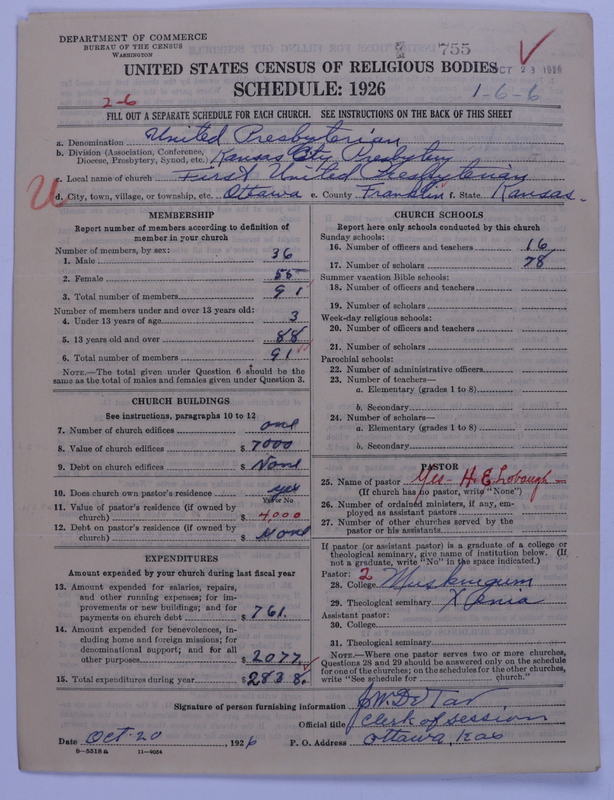 DEPARTMENT OF COMMERCE
BUREAU OF THE CENSUS
WASHINGTON
755
OCT 23 1926
UNITED STATES CENSUS OF RELIGIOUS BODIES
SCHEDULE: 1926
2-6
1-6-6
FILL OUT A SEPARATE SCHEDULE FOR EACH CHURCH. SEE INSTRUCTIONS ON THE BACK OF THIS SHEET
a. Denomination United Presbyterian
b. Division (Association, Conference, Diocese, Presbytery, Synod, etc.) Kansas City Presbytery
c. Local name of church First United Presbyterian
d. City, town, village, or township, etc. Ottawa e. County Franklin f. State Kansas.
MEMBERSHIP
Report number of members according to definition of member in your church
Number of members, by sex:
1. Male 36
2. Female 55
3. Total number of members 91
Number of members under and over 13 years old:
4. Under 13 years of age 3
5. 13 years old and over 88
6. Total number of members 91
NOTE.—The total given under Question 6 should be the same as the total of males and females given under Question 3.
CHURCH BUILDINGS
See instructions, paragraphs 10 to 12
7. Number of church edifices one
8. Value of church edifices $ 7000
9. Debt on church edifices $ None
10. Does church own pastor's residence yes
Yes or No
11. Value of pastor's residence (if owned by church) $ 4,000
12. Debt on pastor's residence (if owned by church) $ None
EXPENDITURES
Amount expended by your church during last fiscal year
13. Amount expended for salaries, repairs, and other running expenses; for improvements or new buildings; and for payments on church debt $ 761.
14. Amount expended for benevolences, including home and foreign missions; for denominational support; and for all other purposes $ 2077
15. Total expenditures during year $ 2838.
CHURCH SCHOOLS
Report here only schools conducted by this church
Sunday schools:
16. Number of officers and teachers 16
17. Number of scholars 78
Summer vacation Bible schools:
18. Number of officers and teachers
19. Number of scholars
Week-day religious schools:
20. Number of officers and teachers
21. Number of scholars
Parochial schools:
22. Number of administrative officers
23. Number of teachers—
a. Elementary (grades 1 to 8)
b. Secondary
24. Number of scholars—
a. Elementary (grades 1 to 8)
b. Secondary
PASTOR
25. Name of pastor Yes- H. E. Lobaugh
(If church has no pastor, write "None")
26. Number of ordained ministers, if any, employed as assistant pastors
27. Number of other churches served by the pastor or his assistants
If pastor (or assistant pastor) is a graduate of a college or theological seminary, give name of institution below. (If not a graduate, write "No" in the space indicated.)
Pastor: 2
28. College Muskingum
29. Theological seminary Xenia
Assistant pastor:
30. College
31. Theological seminary
NOTE.—Where one pastor serves two or more churches, Questions 28 and 29 should be answered only on the schedule for one of the churches; on the schedules for the other churches, write "See schedule for church."
Signature of person furnishing information
Official title Clerk of Session
Date Oct. 20, 1926 P. O. Address Ottawa, Kas
8-5518a 11-9054